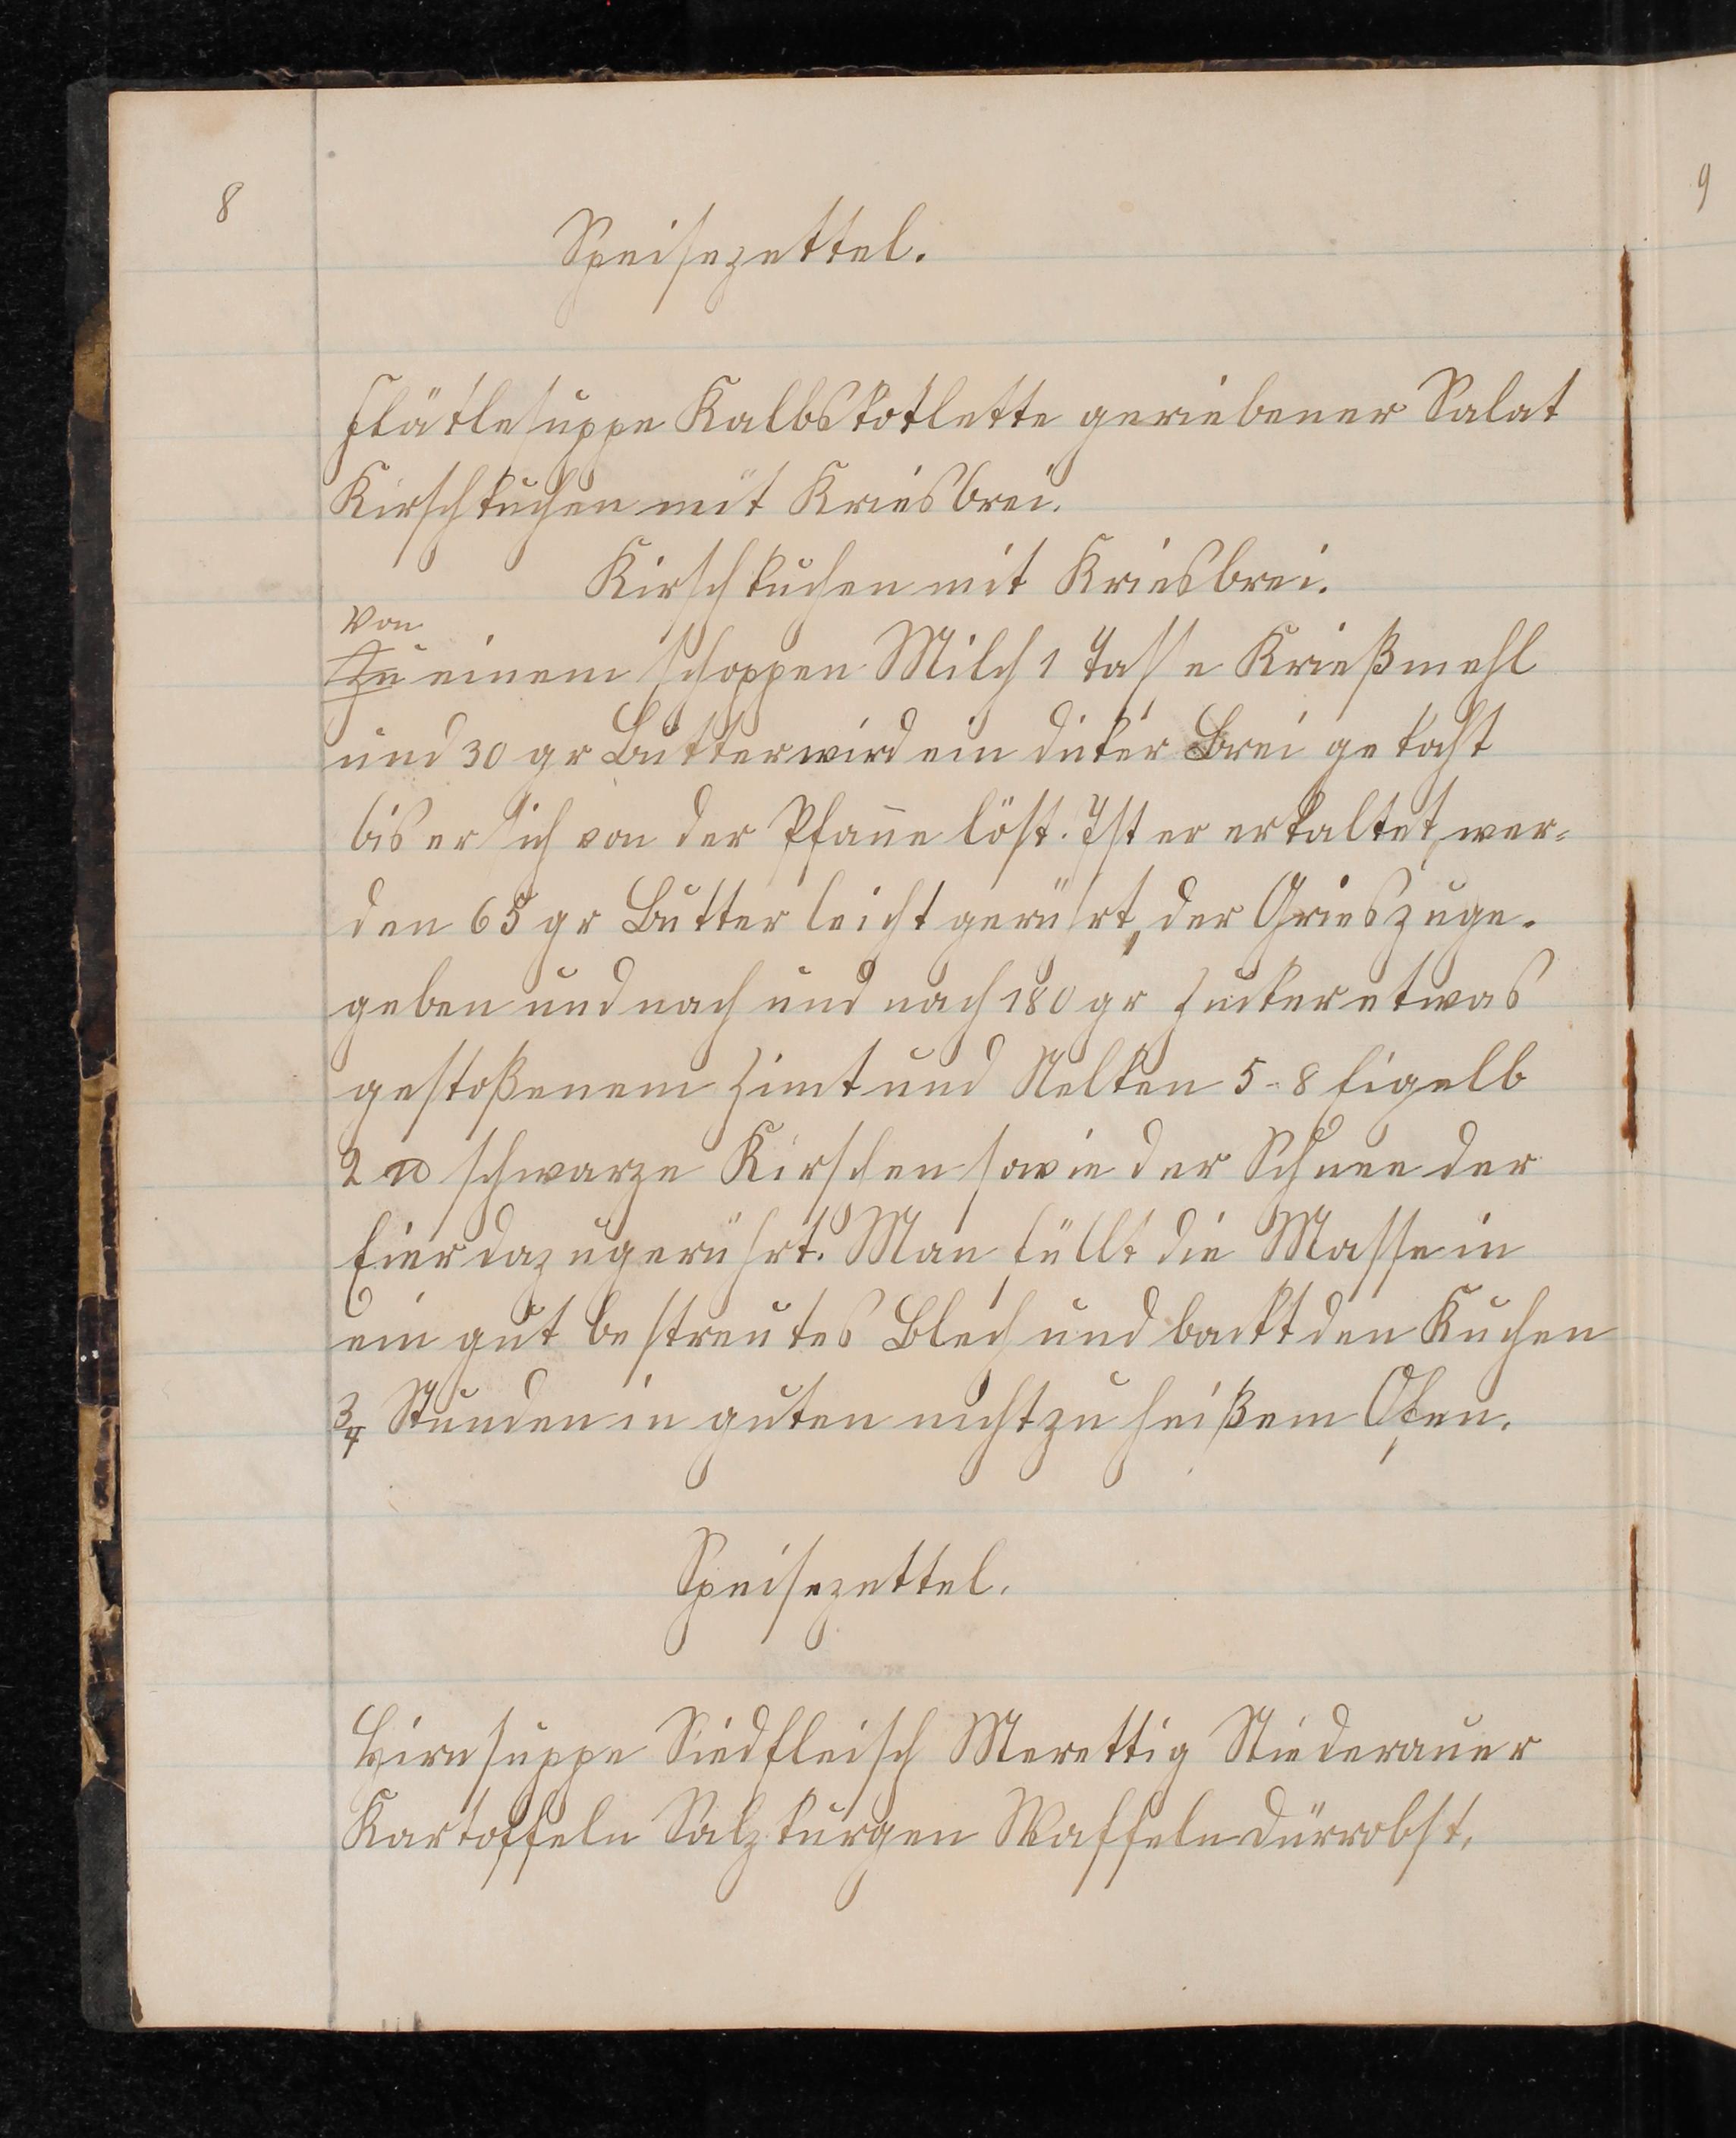 8
9
Speisezettel.
Flätlesuppe Kalbskotlette geriebener Salat
Kirschkuchen mit Kriesbrei.
Kirschkuchen mit Kriesbrei.
Von
Zu einem schoppen Milch 1 Tasse Krießmehl
und 30 gr Butter wird ein dicker Brei gekocht
bis er sich von der Pfanne löst. Ist er erkaltet, wer=
den 65 gr Butter leicht gerührt, der Gries zuge-
geben und nach und nach 180 gr Zucker etwas
gestoßenem Zimt und Nelken 5-8 Eigelb
2 ℔ schwarze Kirschen sowie der Schnee der
Eier dazugerührt. Man füllt die Masse in
ein gut bestreutes Blech und backt den Kuchen
3/4 Stunden in guten nicht zu heißem Ofen.
Speisezettel.
Hirnsuppe Siedfleisch Merettig
Kartoffeln Salzkurgen Waffeln Dürrobst.